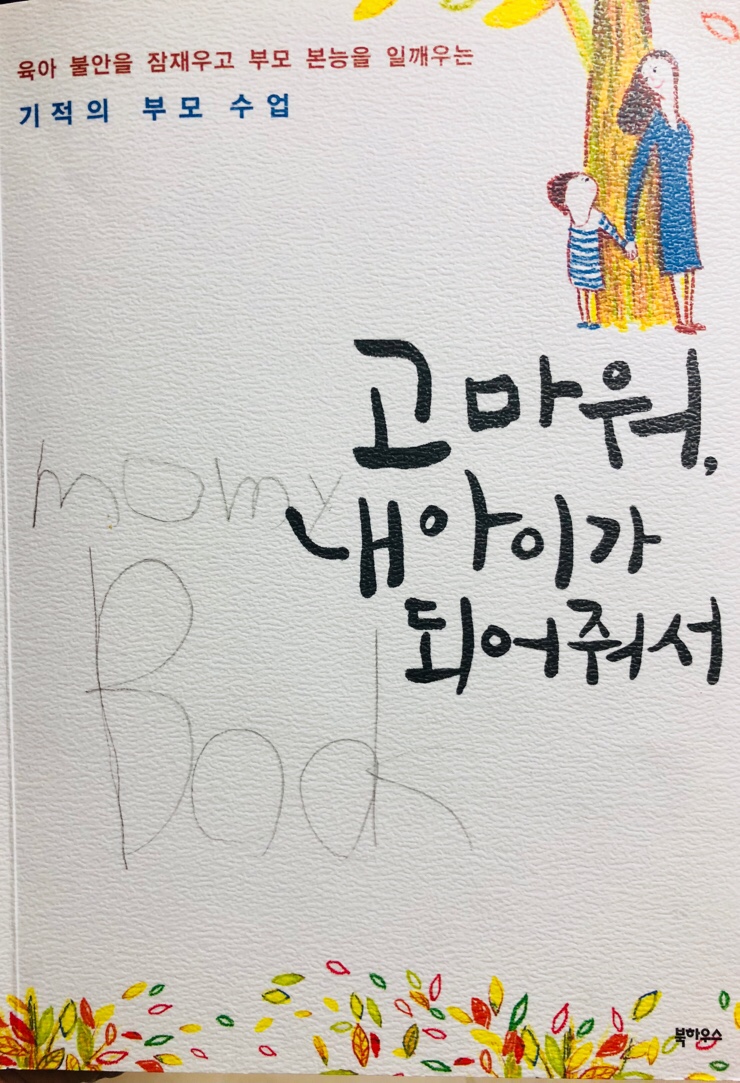 육아 불안을 잠재우고 부모 본능을 일깨우는
기적의 부모 수업
고마워,
내 아이가
되어줘서
momy
Bad
북하우스